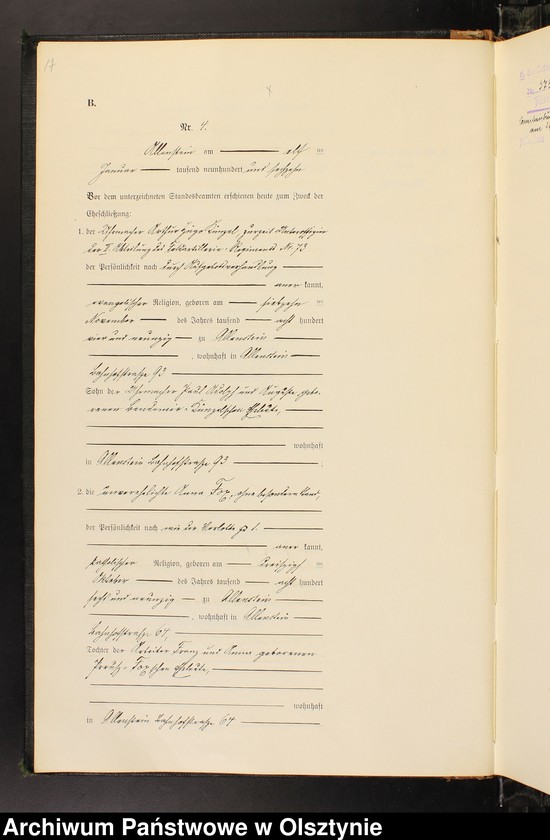 17
B.
Nr. 4.
Allenstein am elf ten
Januar tausend neunhundert und sechzehn
Vor dem unterzeichneten Standesbeamten erschienen heute zum Zweck der
Eheschließung:
1. der Uhrmacher Arthur Hugo Künzel, zurzeit Unteroffizier
der II. Abteilung des Feldartillerie-Regiments Nr. 73
der Persönlichkeit nach durch Aufgebotsverhandlung
aner kannt,
evangelischer Religion, geboren am siebzehn ten
November des Jahres tausend acht hundert
vier und neunzig zu Allenstein
, wohnhaft in Allenstein
Bahnhofstraße 93
Sohn der Uhrmacher Paul Adolf und Auguste, gebo-
renen Künzelschen Eheleute,
wohnhaft
in Allenstein Bahnhofstraße 93
2. die unverehelichte Anna Fox, ohne besonderen Stand,
der Persönlichkeit nach wie der Verlobte zu 1.
aner kannt,
katholischer Religion, geboren am dreißigst ten
Oktober des Jahres tausend acht hundert
sechs und neunzig zu Allenstein
, wohnhaft in Allenstein
Bahnhofstraße 64,
Tochter der Arbeiter Franz und Anna geborenen
Preuß-Fox'schen Eheleute,
wohnhaft
in Allenstein Bahnhofstraße 64
Archiwum Państwowe w Olsztynie